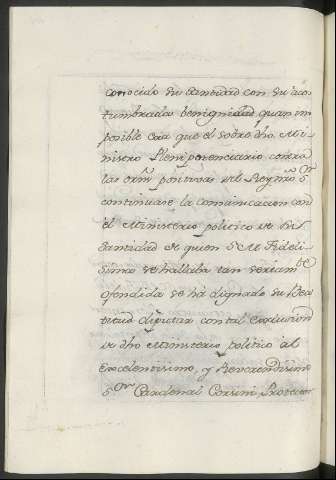 conocido su Santidad con su acos
tumbrada benignidad quan im
posible era que el sobre dho Mi-
nistro Plenipotenciario contra
las ordns positivas del Rey mro Sr
continuase la comunicacion con
el Ministerio politico de su
Santidad de quien S. M. Fideli-
sima se hallaba tan seriamte
ofendida se ha dignado su Bea
titud diputar con tal exclusion
de dho Ministerio politico al
Excelentisimo, y Reverendisimo
Sor Cardenal Corsini Protector